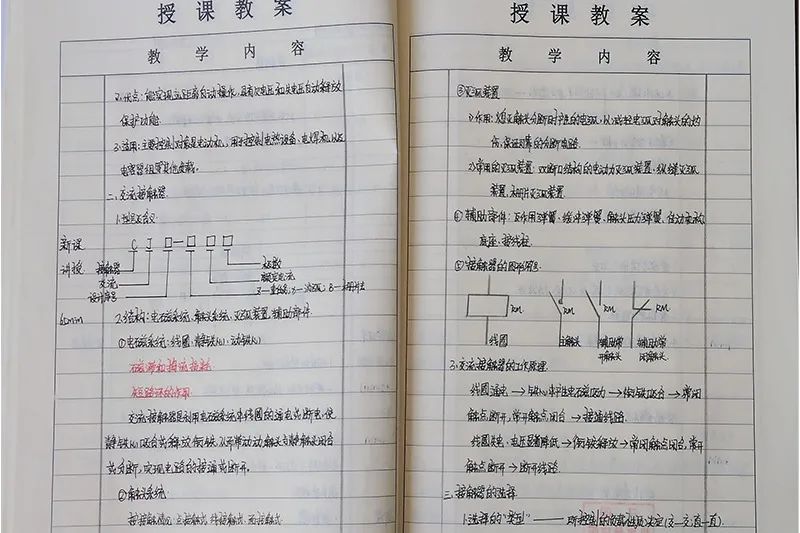 授课教案
教学内容
2.优点:能实现远距离自动操作,具有欠电压和失电压自动释放
保护功能.
3.适用:主要控制对象是电动机,用于控制电热设备、电焊机以及
电容器组等其他负载.
二、交流接触器
1.型号及含义
新课
讲授
C J □-□ □ □
接触器
交流
设计序号
极数
额定电流
60min
2.结构:电磁系统、触头系统、灭弧装置、辅助部件
①电磁系统:线圈、静铁心、动铁心
短路环的作用
交流接触器是利用电磁系统中线圈的通电或断电,使
静铁心吸合或释放衔铁,从而带动动触头与静触头闭合
或分断,实现电路的接通或断开.
②触头系统
按接触情况:点接触式、线接触式、面接触式.
授课教案
教学内容
③灭弧装置
1)作用:熄灭触头分断时产生的电弧,以减轻电弧对触头的灼
伤,保证可靠的分断电路.
2)常用的灭弧装置:双断口结构的电动力灭弧装置、纵缝灭弧
装置、栅片灭弧装置
④辅助部件:反作用弹簧、缓冲弹簧、触头压力弹簧、传动机构
底座、接线柱.
⑤接触器的图形符号:
KM KM KM
线圈 主触头 辅助常开触头 辅助常闭触头
3.交流接触器的工作原理
线圈通电→铁心产生电磁吸力→衔铁吸合→常闭
触点断开,常开触点闭合→接通线路.
线圈失电、电压显著降低→衔铁释放→常闭触点闭合,常开
触点断开→断开线路.
三、接触器的选择
1.选择的"类型"——所控制的负载性质决定(交—交直—直).